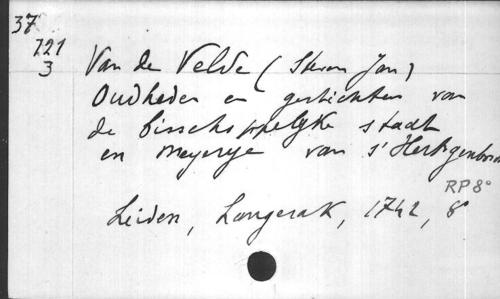 37
121
3
Van de Velde ( Jan)
Oudheden en gestichten van
de bisschoppelyke stadt
en meyerye van s'Hertogenbosch
RP 8°
Leiden, Langerak, 1742, 8°